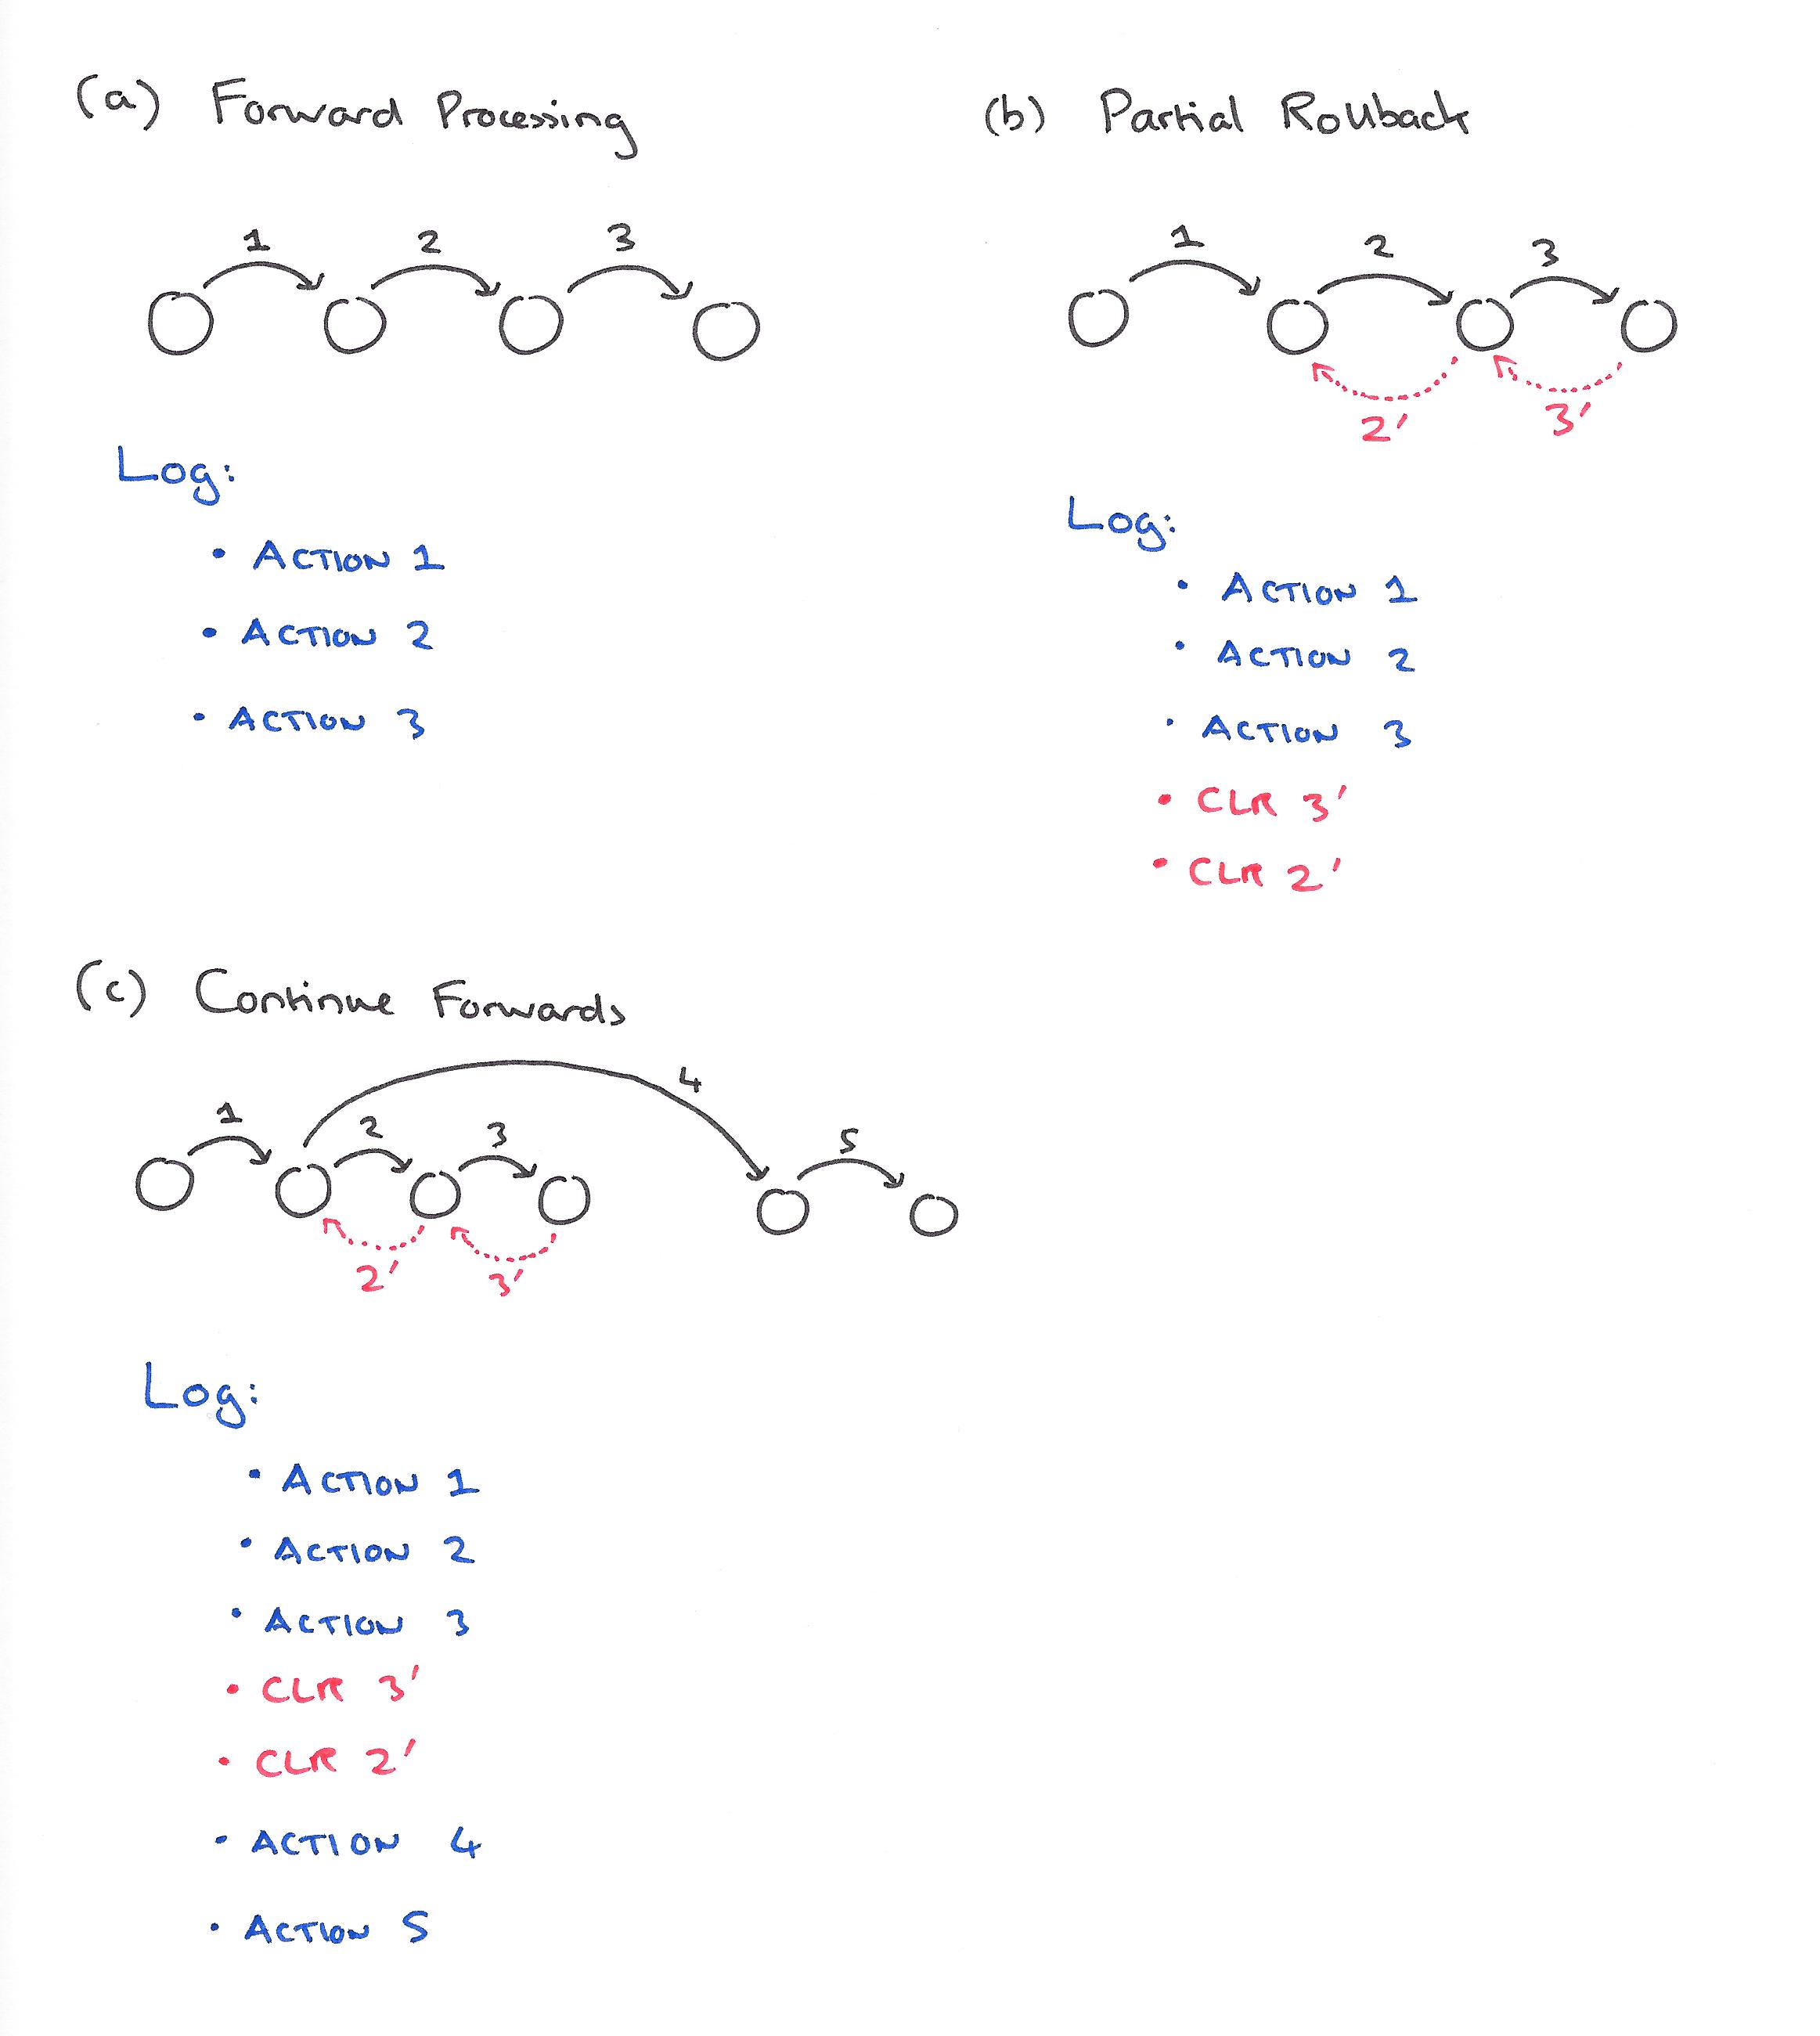 (a) Forward Processing
1 2 3
Log:
• ACTION 1
• ACTION 2
• ACTION 3
(b) Partial Rollback
1 2 3
2' 3'
Log:
• ACTION 1
• ACTION 2
• ACTION 3
• CLR 3'
• CLR 2'
(c) Continue Forwards
4
1 2 3 5
2' 3'
Log:
• ACTION 1
• ACTION 2
• ACTION 3
• CLR 3'
• CLR 2'
• ACTION 4
• ACTION 5